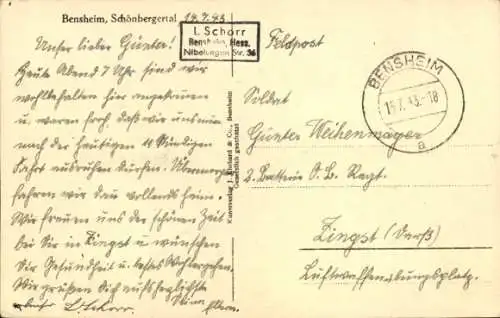 Bensheim, Schönbergertal 14.7.43
Unser lieber Günter!
Heute Abend 7 Uhr sind wir
wohlbehalten hier angekommen
u. waren froh, daß wir uns nun
nach der heutigen 11 stündigen
Fahrt ausruhen durften. Übermorgen
fahren wir dann vollends heim.
Wir freuen uns der schönen Zeit
bei Dir in Zingst u. wünschen
Dir Gesundheit u. bestes Wohlergehen.
Wir grüßen Dich aufs herzlichste
Deine Eltern.
L. Schorr.
I. Schorr
Bensheim, Hess.
Nibelungen Str. 36
Kunstverlag & Co., Bensheim
Gesetzlich geschützt
Feldpost
BENSHEIM
15.7.43.-18
a
Soldat
Günter Weihenmayer
2. Batterie O.B. Regt.
Zingst (Darß)
Luftwaffenübungsplatz.